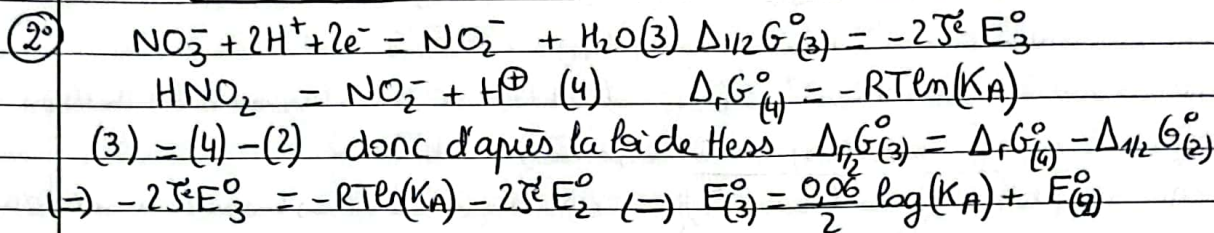 2° NO₃⁻ + 2H⁺ + 2e⁻ = NO₂⁻ + H₂O (3) Δ1/2G°(3) = -2ℱ E°₃
HNO₂ = NO₂⁻ + H⊕ (4) ΔrG°(4) = -RTln(KA)
(3) = (4) - (2) donc d'après la loi de Hess Δr/2G°(3) = ΔrG°(4) - Δ1/2G°(2)
(=) -2ℱE°₃ = -RTln(KA) - 2ℱE°₂ (=) E°(3) = 0,06/2 log(KA) + E°(2)